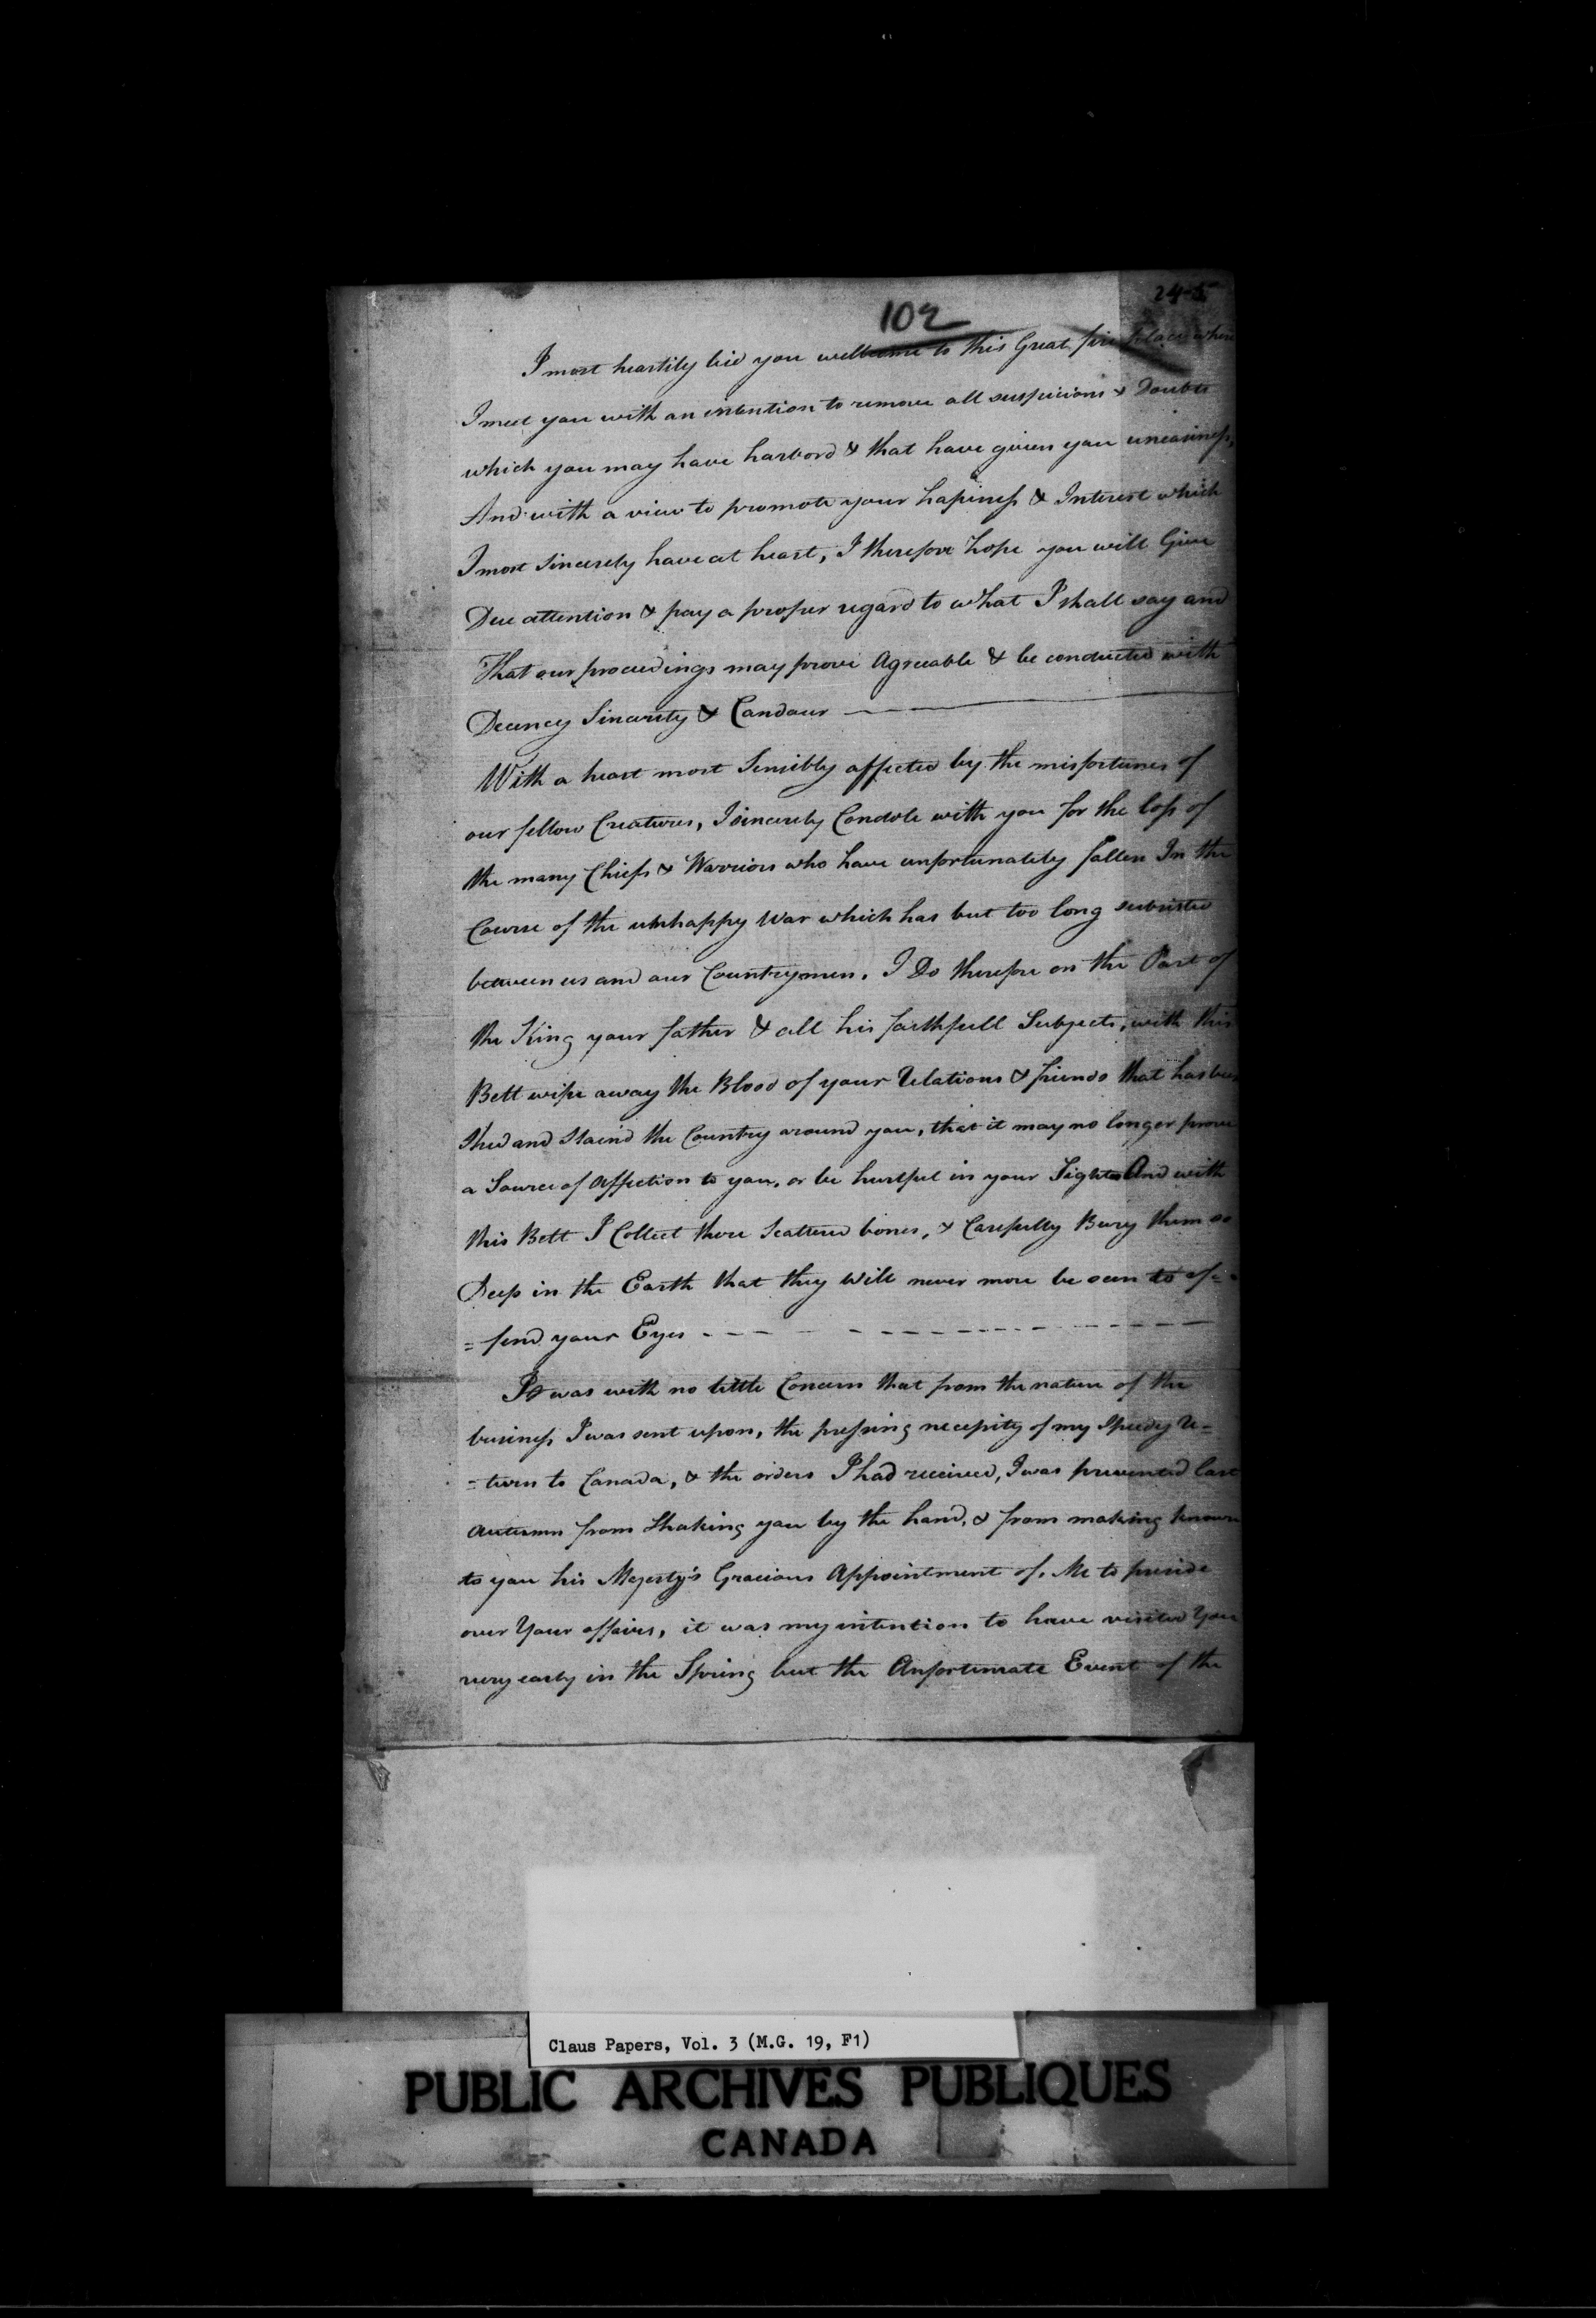 102
24-5
I most heartily bid you wellcome to this Great fire place where
I meet you with an intention to remove all suspicions & Doubts
which you may have harbord & that have given you uneasiness,
And with a view to promote your hapiness & Interest which
I most Sincerely have at heart, I therefore hope you will Give
Due attention & pay a proper regard to what I shall say and
That our proceedings may prove Agreeable & be conducted with
Decency Sincerity & Candour
With a heart most Sensibly affected by the misfortunes of
our fellow Creatures, I sincerely Condole with you for the loss of
the many Chiefs & Warriors who have unfortunately fallen In the
Course of the unhappy War which has but too long subsisted
between us and our Countrymen. I Do therefore on the Part of
the King your father & all his faithfull Subjects, with this
Belt wipe away the Blood of your Relations & friends that has been
Shed and Staind the Country around you, that it may no longer prove
a Source of Affection to you, or be hurtful in your Sight And with
this Belt I Collect there Scattered bones, & Carefully Bury them so
Deep in the Earth that they will never more be seen to of=
=fend your Eyes
It was with no little Concern that from the nature of the
business I was sent upon, the pressing necessity of my Speedy Re=
=turn to Canada, & the orders I had received, I was prevented last
Autumn from Shaking you by the hand, & from making known
to you his Majesty's Gracious Appointment of Me to preside
over Your affairs, it was my intention to have visited You
very early in the Spring but the Unfortunate Event of the
Claus Papers, Vol. 3 (M.G. 19, F1)
PUBLIC ARCHIVES PUBLIQUES
CANADA